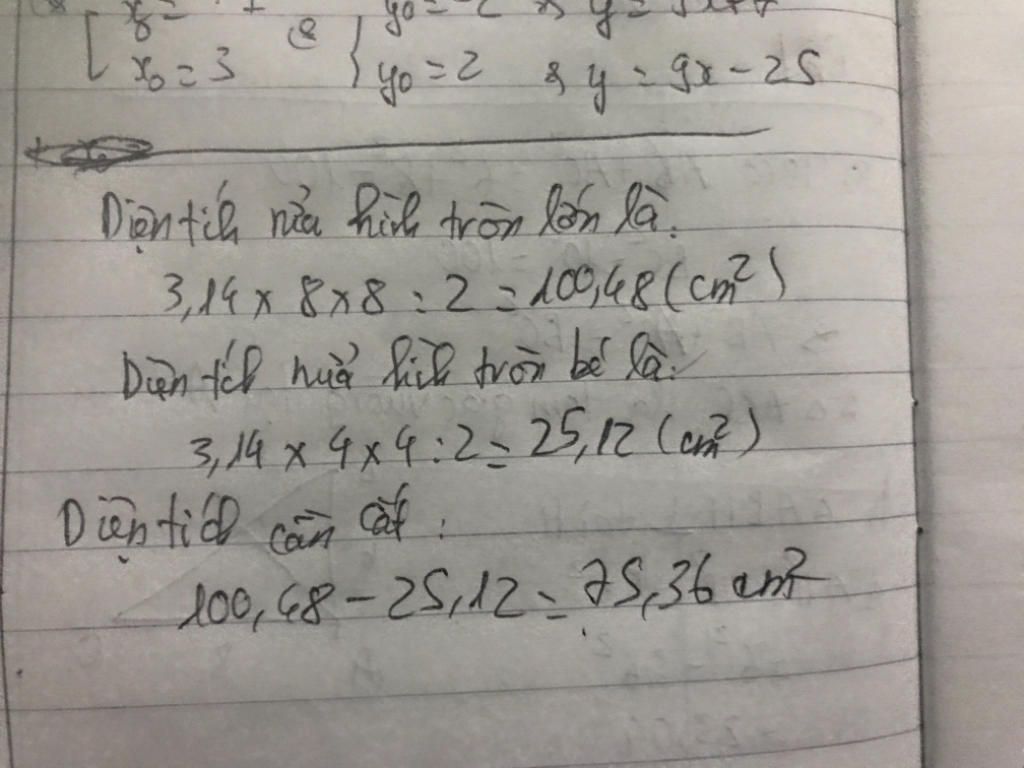 x₀ = 3 y₀ = 2 & y = 9x - 25
Diện tích nửa hình tròn lớn là:
3,14 x 8 x 8 : 2 = 100,48 (cm²)
Diện tích nửa hình tròn bé là:
3,14 x 4 x 4 : 2 = 25,12 (cm²)
Diện tích cần cắt:
100,48 - 25,12 = 75,36 cm²